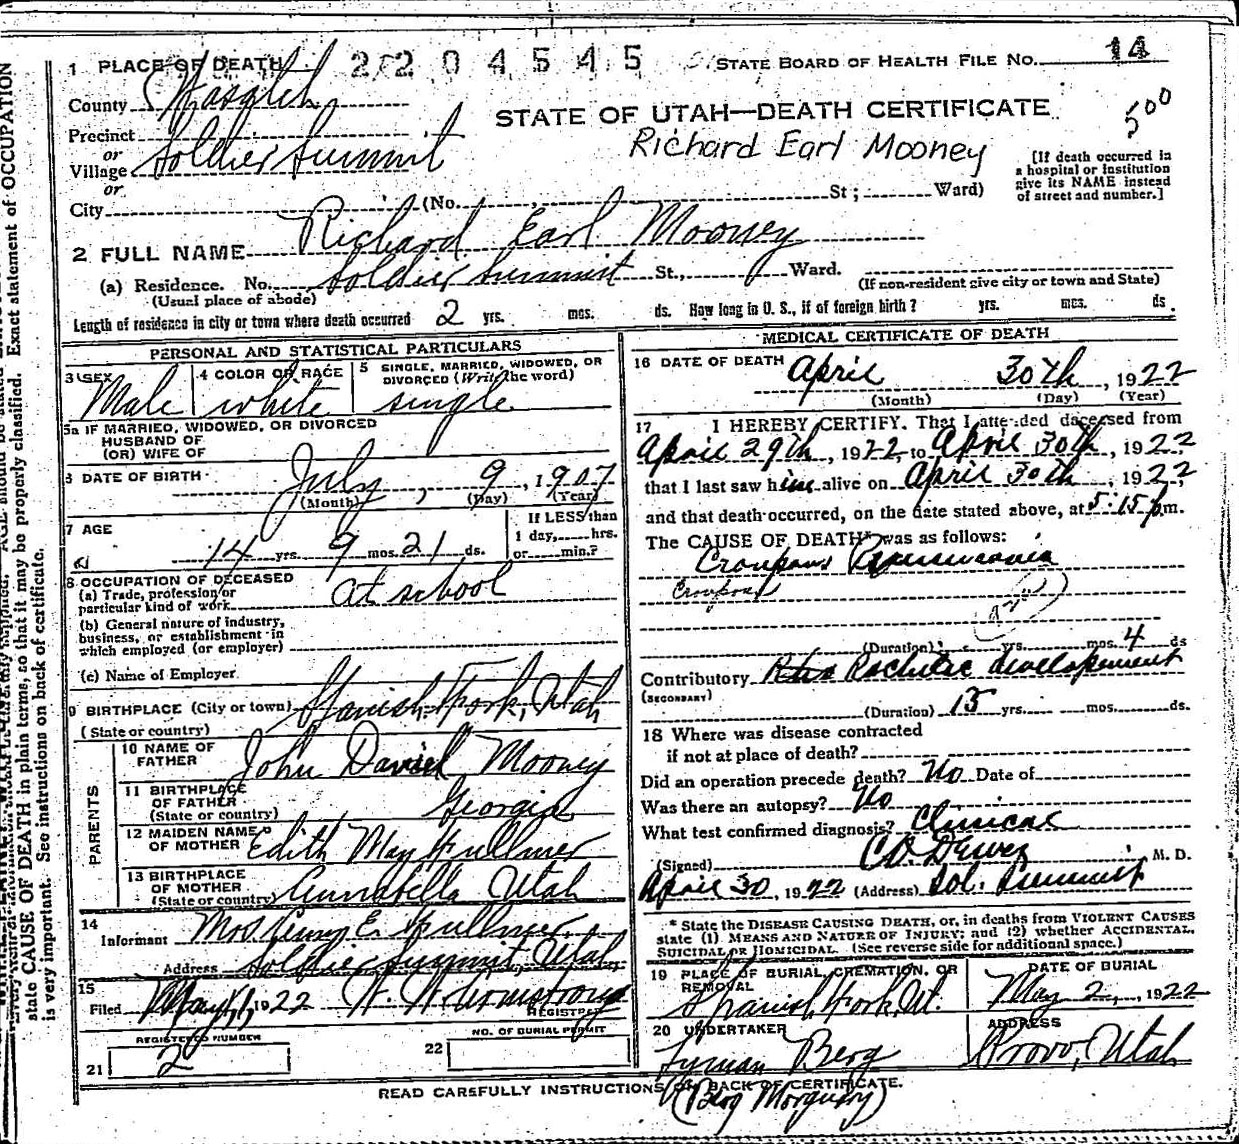 1 PLACE OF DEATH 2204545 STATE BOARD OF HEALTH FILE NO. 14
County Wasatch
STATE OF UTAH—DEATH CERTIFICATE 500
Precinct
or
Village Soldier Summit
Richard Earl Mooney
or
City (No. , St; Ward)
[If death occurred in
a hospital or institution
give its NAME instead
of street and number.]
2 FULL NAME Richard Earl Mooney
(a) Residence. No. Soldier Summit St., Ward.
(Usual place of abode) (If non-resident give city or town and State)
Length of residence in city or town where death occurred 2 yrs. mos. ds. How long in U. S., if of foreign birth? yrs. mos. ds
PERSONAL AND STATISTICAL PARTICULARS
3 SEX Male
4 COLOR OR RACE white
5 SINGLE, MARRIED, WIDOWED, OR
DIVORCED (Write the word)
single
5a IF MARRIED, WIDOWED, OR DIVORCED
HUSBAND OF
(OR) WIFE OF
6 DATE OF BIRTH July, 9, 1907
(Month) (Day) (Year)
7 AGE
14 yrs. 9 mos. 21 ds.
If LESS than
1 day, hrs.
or min.?
8 OCCUPATION OF DECEASED
(a) Trade, profession or
particular kind of work at school
(b) General nature of industry,
business, or establishment in
which employed (or employer)
(c) Name of Employer
9 BIRTHPLACE (City or town) Spanish Fork, Utah
(State or country)
PARENTS
10 NAME OF
FATHER John Daniel Mooney
11 BIRTHPLACE
OF FATHER
(State or country) Georgia
12 MAIDEN NAME
OF MOTHER Edith May Fullmer
13 BIRTHPLACE
OF MOTHER
(State or country) Annabella Utah
14
Informant Mrs. E. Fullmer
Address Soldier Summit, Utah
15
Filed May 1, 1922 W. W. Armstrong
REGISTRAR
REGISTERED NUMBER
21 2
NO. OF BURIAL PERMIT
22
MEDICAL CERTIFICATE OF DEATH
16 DATE OF DEATH April 30th, 1922
(Month) (Day) (Year)
17 I HEREBY CERTIFY. That I attended deceased from
April 29th, 1922, to April 30th, 1922
that I last saw him alive on April 30th, 1922
and that death occurred, on the date stated above, at 5:15 p.m.
The CAUSE OF DEATH* was as follows:
Croupous Pneumonia
Croupous
(Duration) yrs. mos. 4 ds
Contributory Rachitic development
(SECONDARY)
(Duration) 15 yrs. mos. ds.
18 Where was disease contracted
if not at place of death?
Did an operation precede death? No Date of
Was there an autopsy? No
What test confirmed diagnosis? Clinical
(Signed) M. D.
April 30, 1922 (Address) Sol. Summit
* State the DISEASE CAUSING DEATH, or, in deaths from VIOLENT CAUSES
state (1) MEANS AND NATURE OF INJURY; and (2) whether ACCIDENTAL,
SUICIDAL OR HOMICIDAL. (See reverse side for additional space.)
19 PLACE OF BURIAL, CREMATION, OR
REMOVAL
Spanish Fork Ut.
DATE OF BURIAL
May 2, 1922
20 UNDERTAKER
Lyman Berg
(Berg Morguary)
ADDRESS
Provo, Utah
READ CAREFULLY INSTRUCTIONS ON BACK OF CERTIFICATE.
state CAUSE OF DEATH in plain terms, so that it may be properly classified. Exact statement of OCCUPATION
is very important. See instructions on back of certificate.